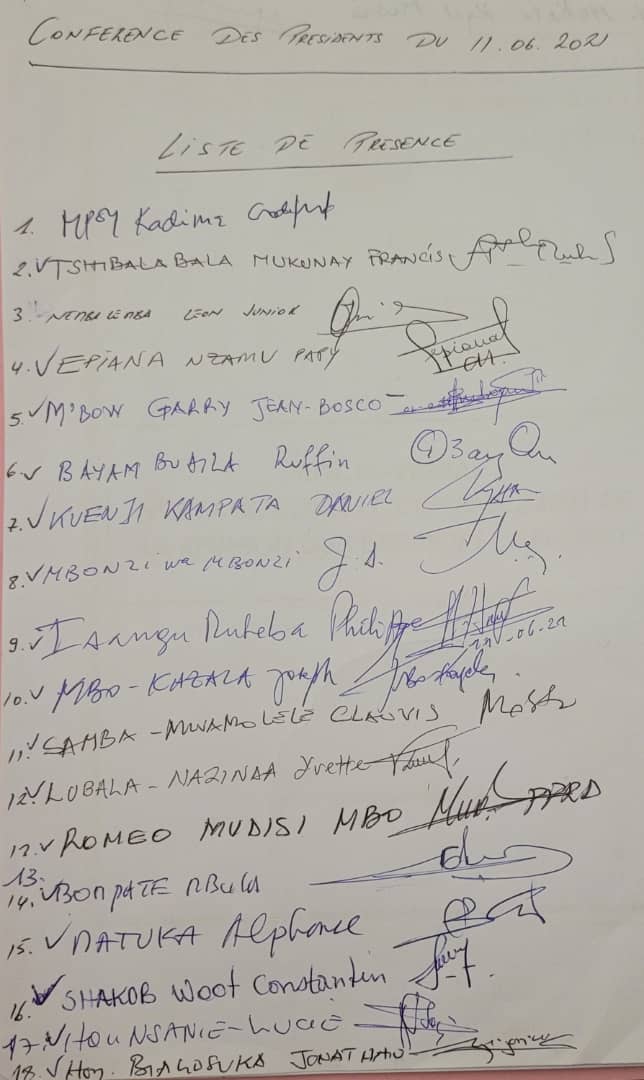 CONFERENCE DES PRESIDENTS DU 11.06.2021
LISTE DE PRESENCE
1. MPOY Kadima
2. TSHIBALABALA MUKUNAY FRANCIS
3. LEON JUNIOR
4. EPIANA NZAMU PAPY
5. M'BOW GARRY JEAN-BOSCO
6. BAYAM BUAILA Ruffin
7. KUENJI KAMPATA DANIEL
8. MBONZI wa MBONZI J.A.
9. Isangu Philippe
11-06-21
10. MBO-KAZALA Joseph
11. SAMBA-MWAMOLELE CLAUVIS
12. LUBALA-NAZINDA Yvette
12. ROMEO MUDISI MBO PPRD
13.
14. BOMPATE MBULA
15. MATUKA Alphonse
16. SHAKOB Woot Constantin
17. Hou NSANIE-LUCIE
18. Hon. BIALOSUKA JONATHAN